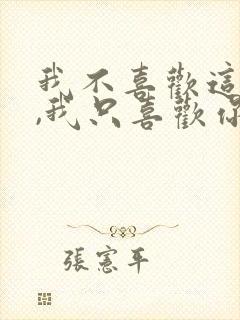 我不喜歡這
,我只喜歡你
張憲平